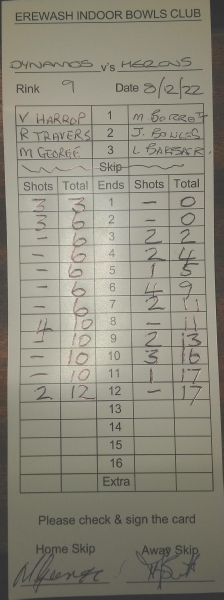 EREWASH INDOOR BOWLS CLUB
DYNAMOS v's HERONS
Rink 9 Date 8/12/22
V HARROP 1 M
R TRAVERS 2 J. BOWLES
M GEORGE 3 L
Skip
Shots Total Ends Shots Total
3 3 1 – 0
3 6 2 – 0
– 6 3 2 2
– 6 4 2 4
– 6 5 1 5
– 6 6 4 9
– 6 7 2 11
4 10 8 – 11
– 10 9 2 13
– 10 10 3 16
– 10 11 1 17
2 12 12 – 17
13
14
15
16
Extra
Please check & sign the card
Home Skip Away Skip